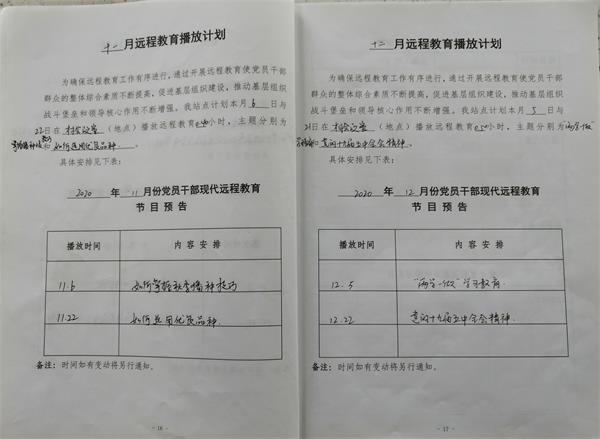 十一月远程教育播放计划
为确保远程教育工作有序进行，通过开展远程教育使党员干部
群众的整体综合素质不断提高，促进基层组织建设，推动基层组织
战斗堡垒和领导核心作用不断增强。我站点计划本月 6 日与
22日在 （地点）播放远程教育 小时，主题分别为
和如何选用优良品种。
具体安排见下表：
2020 年 11 月份党员干部现代远程教育
节目预告
播放时间 内容安排
11.6 如何掌握秋季播种技巧
11.22 如何选用优良品种.
备注：时间如有变动将另行通知。
- 16 -
十二月远程教育播放计划
为确保远程教育工作有序进行，通过开展远程教育使党员干部
群众的整体综合素质不断提高，促进基层组织建设，推动基层组织
战斗堡垒和领导核心作用不断增强。我站点计划本月 5 日与
日在 （地点）播放远程教育 小时，主题分别为"两学一做"
和党的十九届五中全会精神。
具体安排见下表：
2020 年 12 月份党员干部现代远程教育
节目预告
播放时间 内容安排
12.5 "两学一做"学习教育.
12.22 党的十九届五中全会精神.
备注：时间如有变动将另行通知。
- 17 -